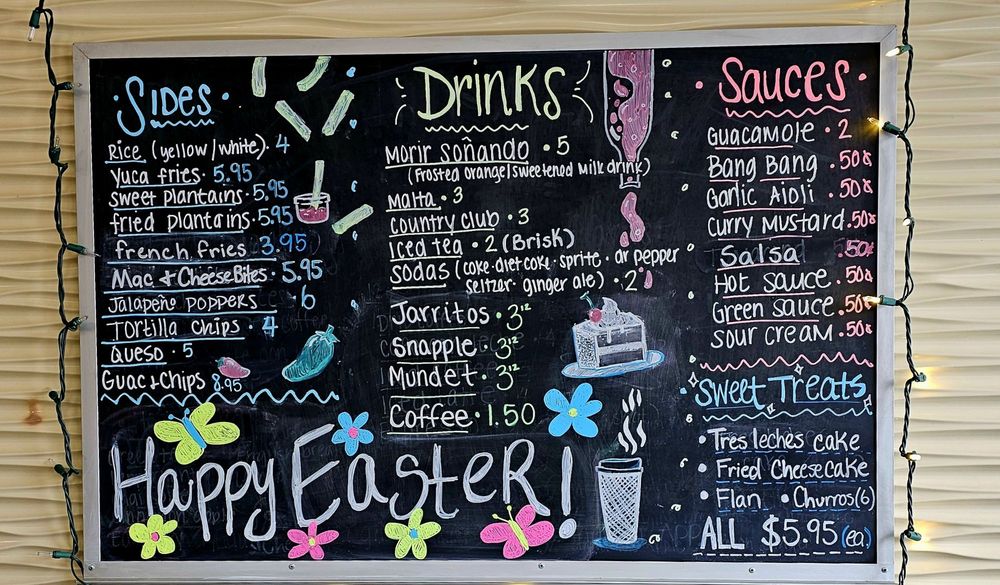 Sides
Rice (yellow/white) · 4
Yuca fries · 5.95
sweet plantains · 5.95
fried plantains · 5.95
french fries 3.95
Mac + Cheese Bites · 5.95
Jalapeño poppers · 6
Tortilla chips · 4
Queso · 5
Guac + Chips 8.95
Drinks
Morir soñando · 5
(frosted orange/sweetened milk drink)
Malta · 3
Country Club · 3
Iced tea · 2 (Brisk)
Sodas (coke · diet coke · sprite · dr pepper
seltzer · ginger ale) · 2
Jarritos · 3¹²
Snapple · 3¹²
Mundet · 3¹²
Coffee · 1.50
Sauces
Guacamole · 2
Bang Bang · .50¢
Garlic Aioli · .50¢
Curry Mustard .50¢
Salsa .50¢
Hot sauce .50¢
Green sauce .50¢
Sour cream .50¢
Sweet Treats
· Tres leches cake
· Fried Cheesecake
· Flan · Churros (6)
ALL $5.95 (ea.)
Happy Easter!